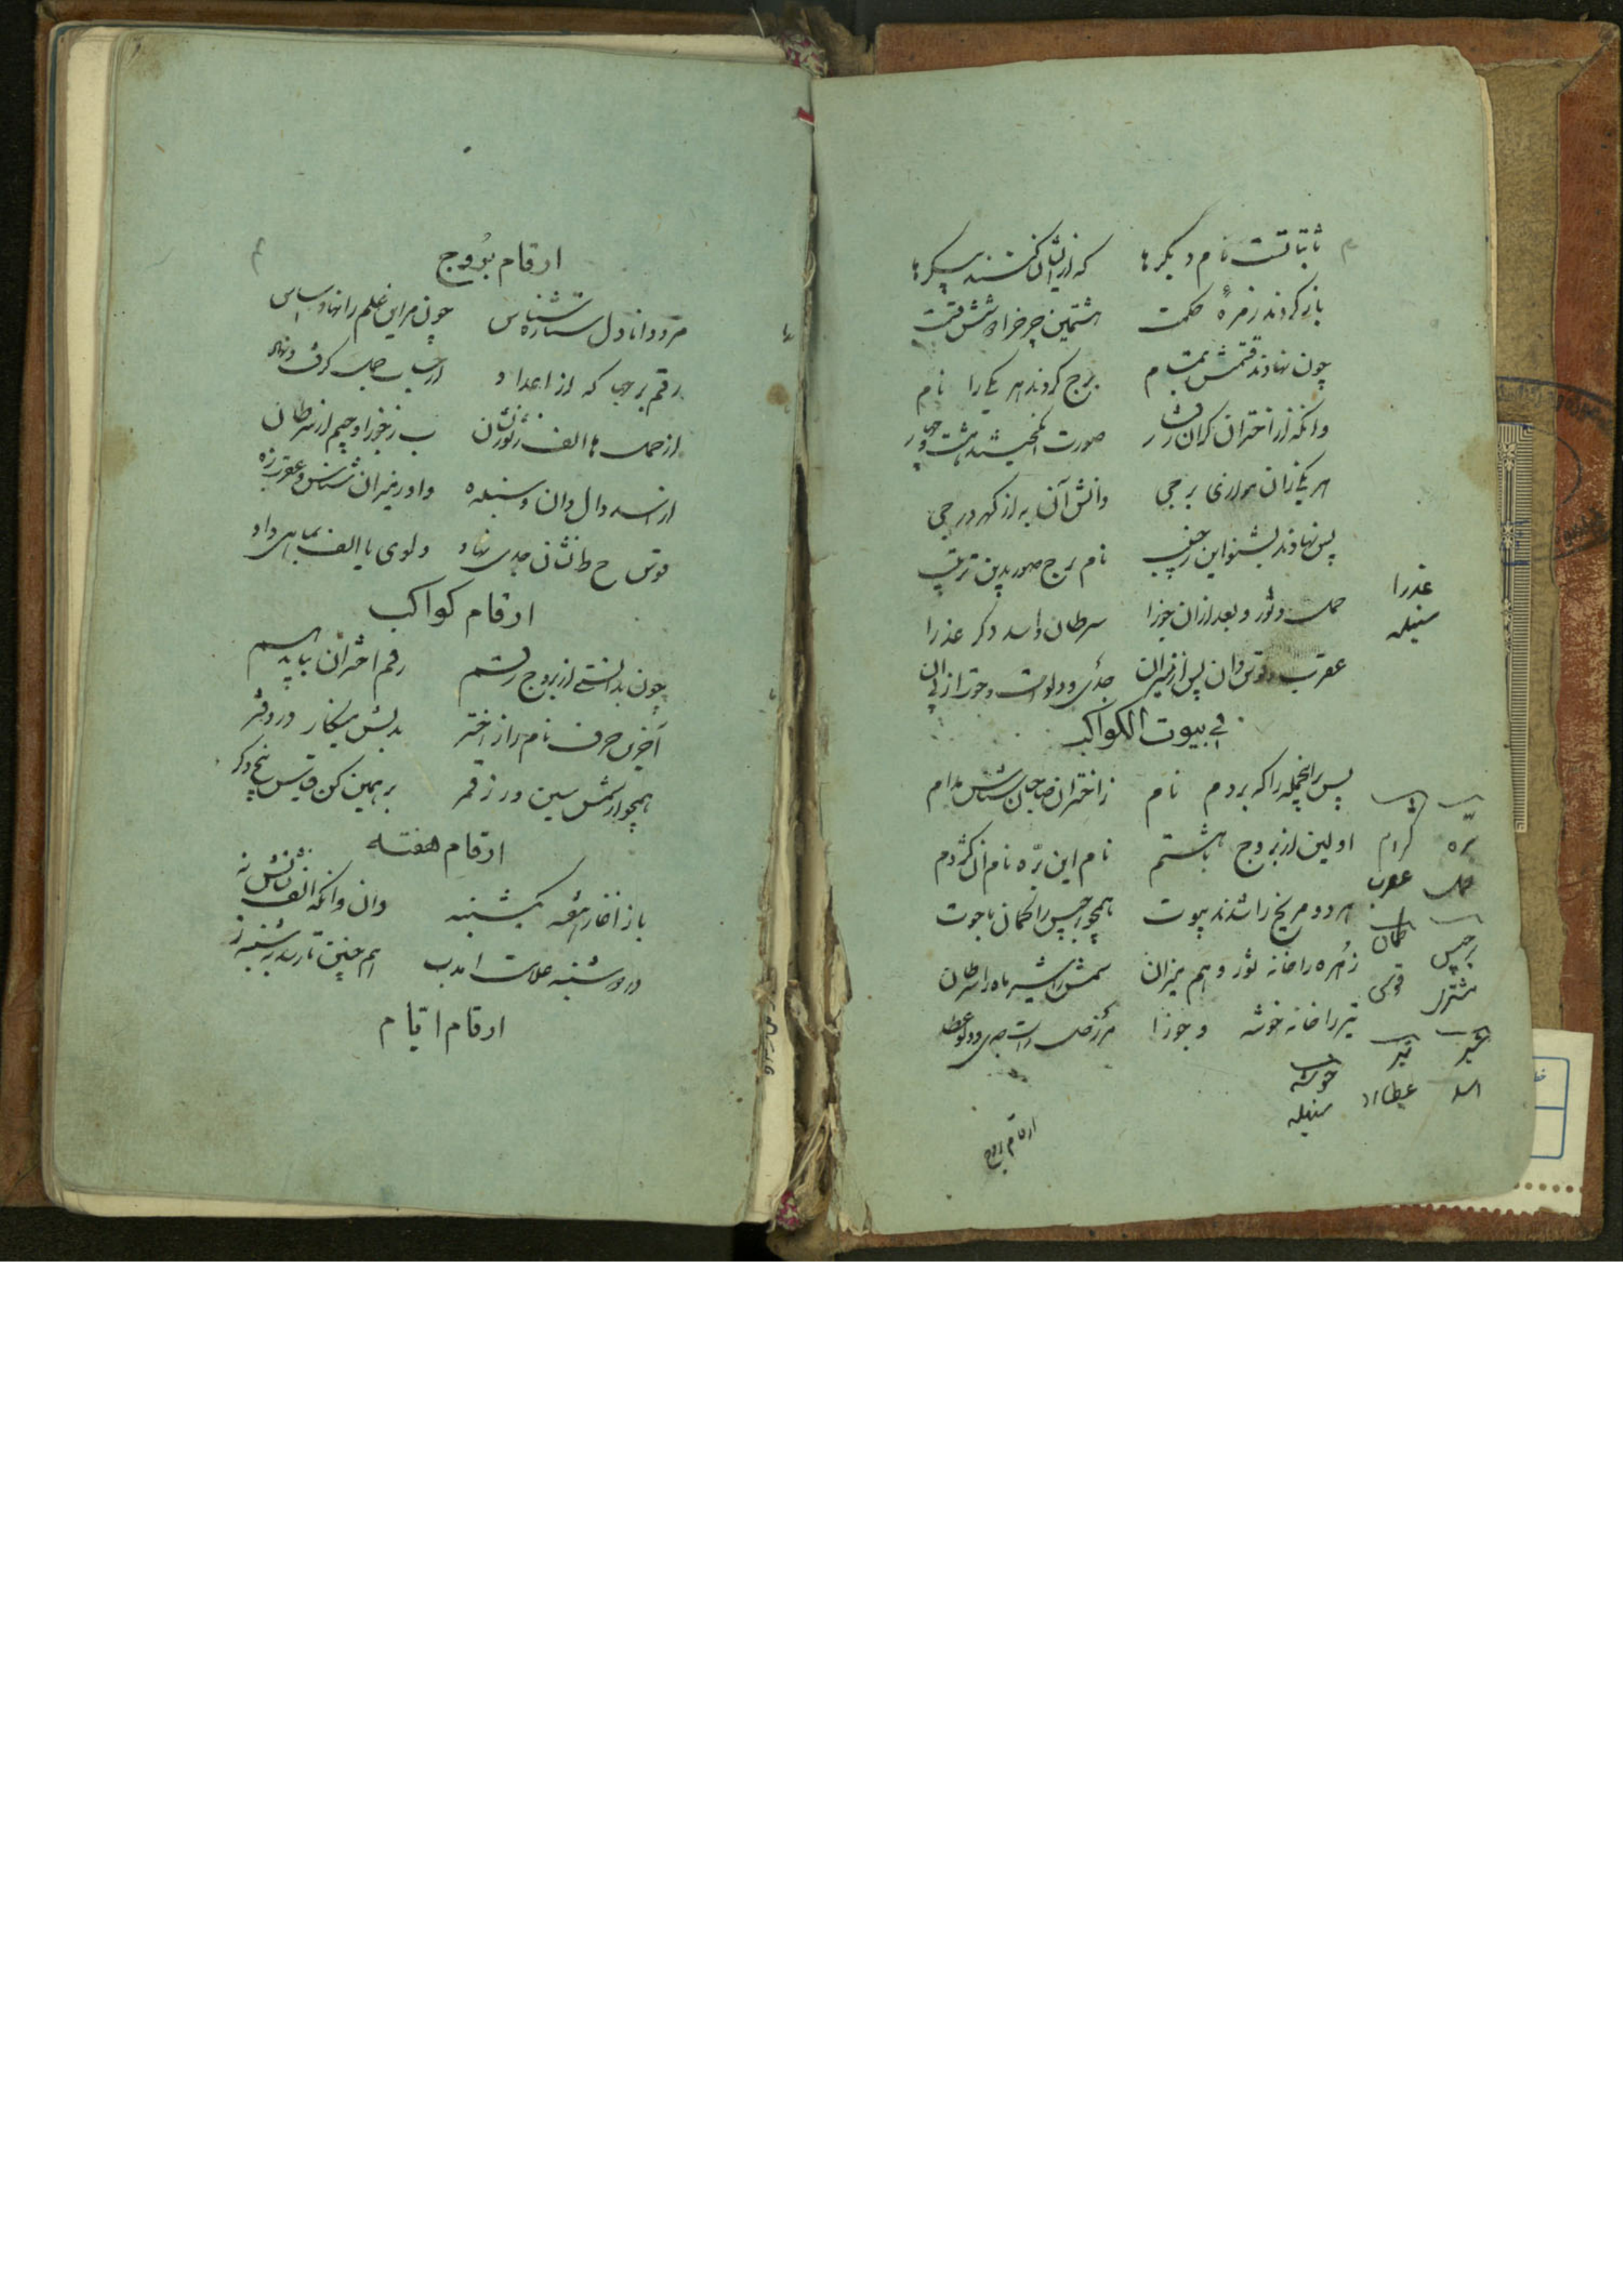 ثابتاتست نام دیکرها که ازیشان کنند پیکرها
باز کردند زمرهٔ حکمت هشتمین چرخ را شش قسمت
چون نهادند قسمتش بتمام برج کردند هر یکی را نام
وانکه از اختران کران
صورت انکیختند هشت و چهار
هر یکی زان برجی دانش آن به از کهر درجی
پس نهادند بشنو این نام برج صور بدین ترتیب
حمل و ثور و بعد ازان جوزا سرطان و اسد دکر عذرا
عذرا
سنبله
عقرب و قوس دان پس از میزان جدی و دلوست و حوت از پی آن
فی بیوت الکواکب
پس برانجمله را که بردم نام ز اختران صاحبان شناس مدام
اولین از بروج با هشتم نام این بره نام آن کژدم
هر دو مریخ را شدند بیوت همچو برجیس را کمان با حوت
زُهره را خانه ثور و هم میزان شمس را شیر ماه را سرطان
تیر را خانه خوشه و جوزا مر زحل راست جدی و دلو عطا
بره
حمل
کژدم
عقرب
برجیس
مشتری
کمان
قوس
شیر
اسد
تیر
عطارد
خوشه
سنبله
ارقام بروج
ارقام بُروج
مرد دانا دل ستاره شناس چون مر این علم را نهاد اساس
رقم برجها که از اعداد از حساب جمل کرفت و نهاد
از حمل ها الف ز ثور نشان ب ز جوزا و جیم از سرطان
از اسد دال دان و سنبله ه واو ز میزان شناس و عقرب زه
قوس ح طا نشان جدی نهاد دلو یا الف بماهی داد
ارقام کواکب
چون بدانستی از بروج رقم رقم اختران بباید هم
آخرین حرف نام را ز اختر بدلش مینکار در دفتر
همچو از شمس سین و ر ز قمر برهمین کن قیاس پنج دکر
ارقام هفته
باز آغاز هفته یکشنبه دان وانکه الف نشانش نه
در دوشنبه علامت آمد ب هم چنین تا رسد بشنبه ز
ارقام ایّام